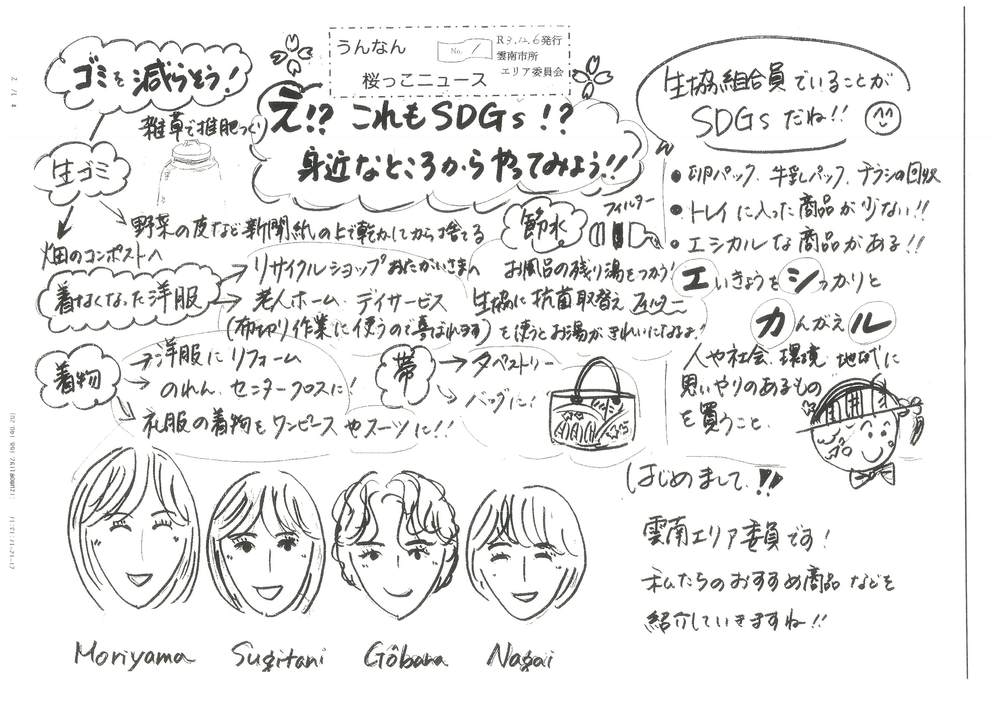 うんなん
桜っこニュース
No. 1
R3.12.6発行
雲南市所
エリア委員会
え!? これもSDGs!?
身近なところからやってみよう!!
ゴミを減らそう!
雑草で堆肥づくり
生ゴミ
野菜の皮など新聞紙の上で乾かしてから捨てる
畑のコンポストへ
着なくなった洋服
→リサイクルショップおたがいさまへ
→老人ホーム・デイサービス
(布切り作業に使うので喜ばれます)
着物
→洋服にリフォーム
→のれん、センタークロスに!
礼服の着物をワンピースやスーツに!!
帯
→タペストリー
バッグに!
節水
フィルター
お風呂の残り湯をつかう!
生協に抗菌取替え フィルター
を使うとお湯がきれいになるよ!
生協組合員でいることが
SDGsだね!!
●卵パック、牛乳パック、チラシの回収
●トレイに入った商品が少ない!!
●エシカルな商品がある!!
エいきょうをシっかりと
カんがえル
人や社会、環境、地域に
思いやりのあるもの
を買うこと。
はじめまして!!
雲南エリア委員です!
私たちのおすすめ商品などを
紹介していきますね!!
Moriyama Sugitani Gōbara Nagai